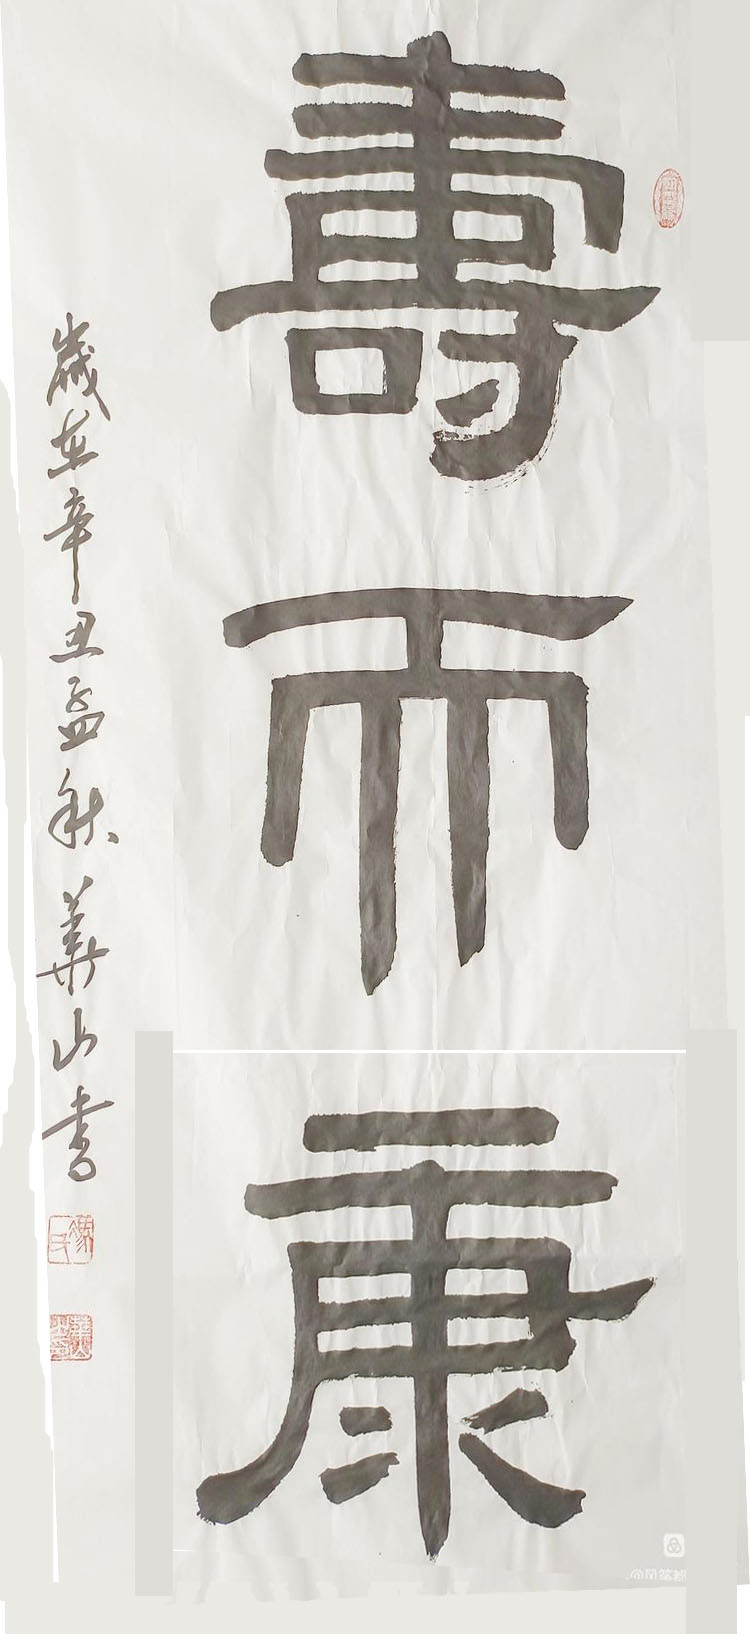 壽而康
歲在辛丑孟秋華山書